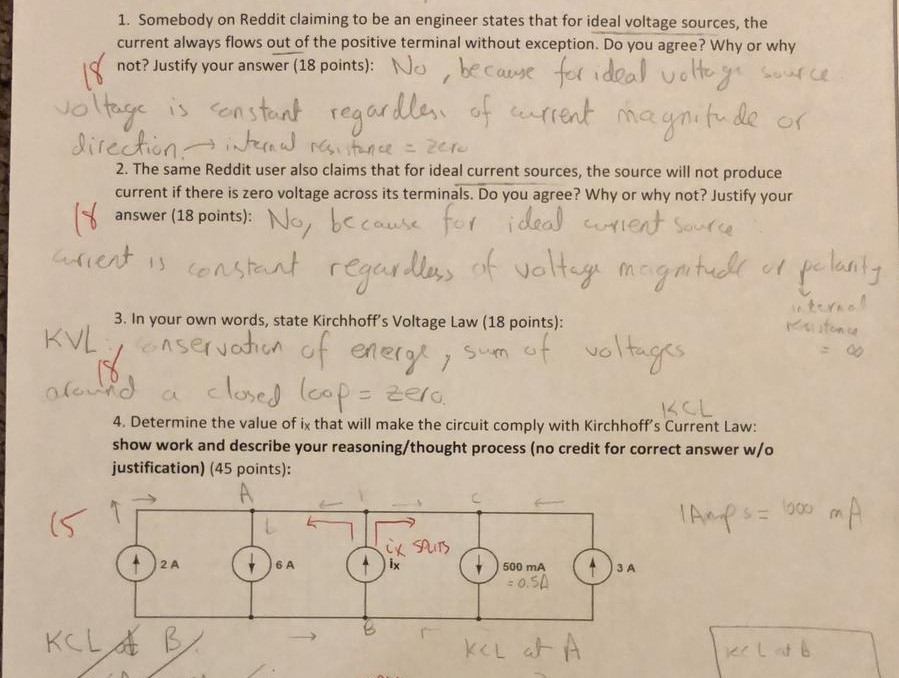 1. Somebody on Reddit claiming to be an engineer states that for ideal voltage sources, the
current always flows out of the positive terminal without exception. Do you agree? Why or why
18 not? Justify your answer (18 points): No, because for ideal voltage source
voltage is constant regardless of current magnitude or
direction. → internal resistance = zero
2. The same Reddit user also claims that for ideal current sources, the source will not produce
current if there is zero voltage across its terminals. Do you agree? Why or why not? Justify your
18 answer (18 points): No, because for ideal current source
current is constant regardless of voltage magnitude or polarity
internal
resistance
= ∞
3. In your own words, state Kirchhoff's Voltage Law (18 points):
KVL: conservation of energy, sum of voltages
18
around a closed loop = zero.
KCL
4. Determine the value of ix that will make the circuit comply with Kirchhoff's Current Law:
show work and describe your reasoning/thought process (no credit for correct answer w/o
justification) (45 points):
15
A
C
1Amps = 1000 mA
ix SPLITS
2 A
6 A
ix
500 mA
3 A
= 0.5A
B
KCL at B
KCL at A
KCL at B